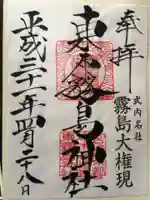 奉拝
式内名社
霧島大権現
東霧島神社
平成三十一年四月二十八日